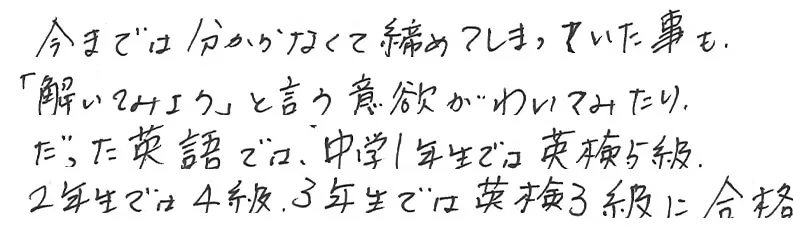 今までは分からなくて締めてしまっていた事も、
「解いてみよう」と言う意欲がわいてみたり、
だった英語では、中学1年生では英検5級、
2年生では4級、3年生では英検3級に合格